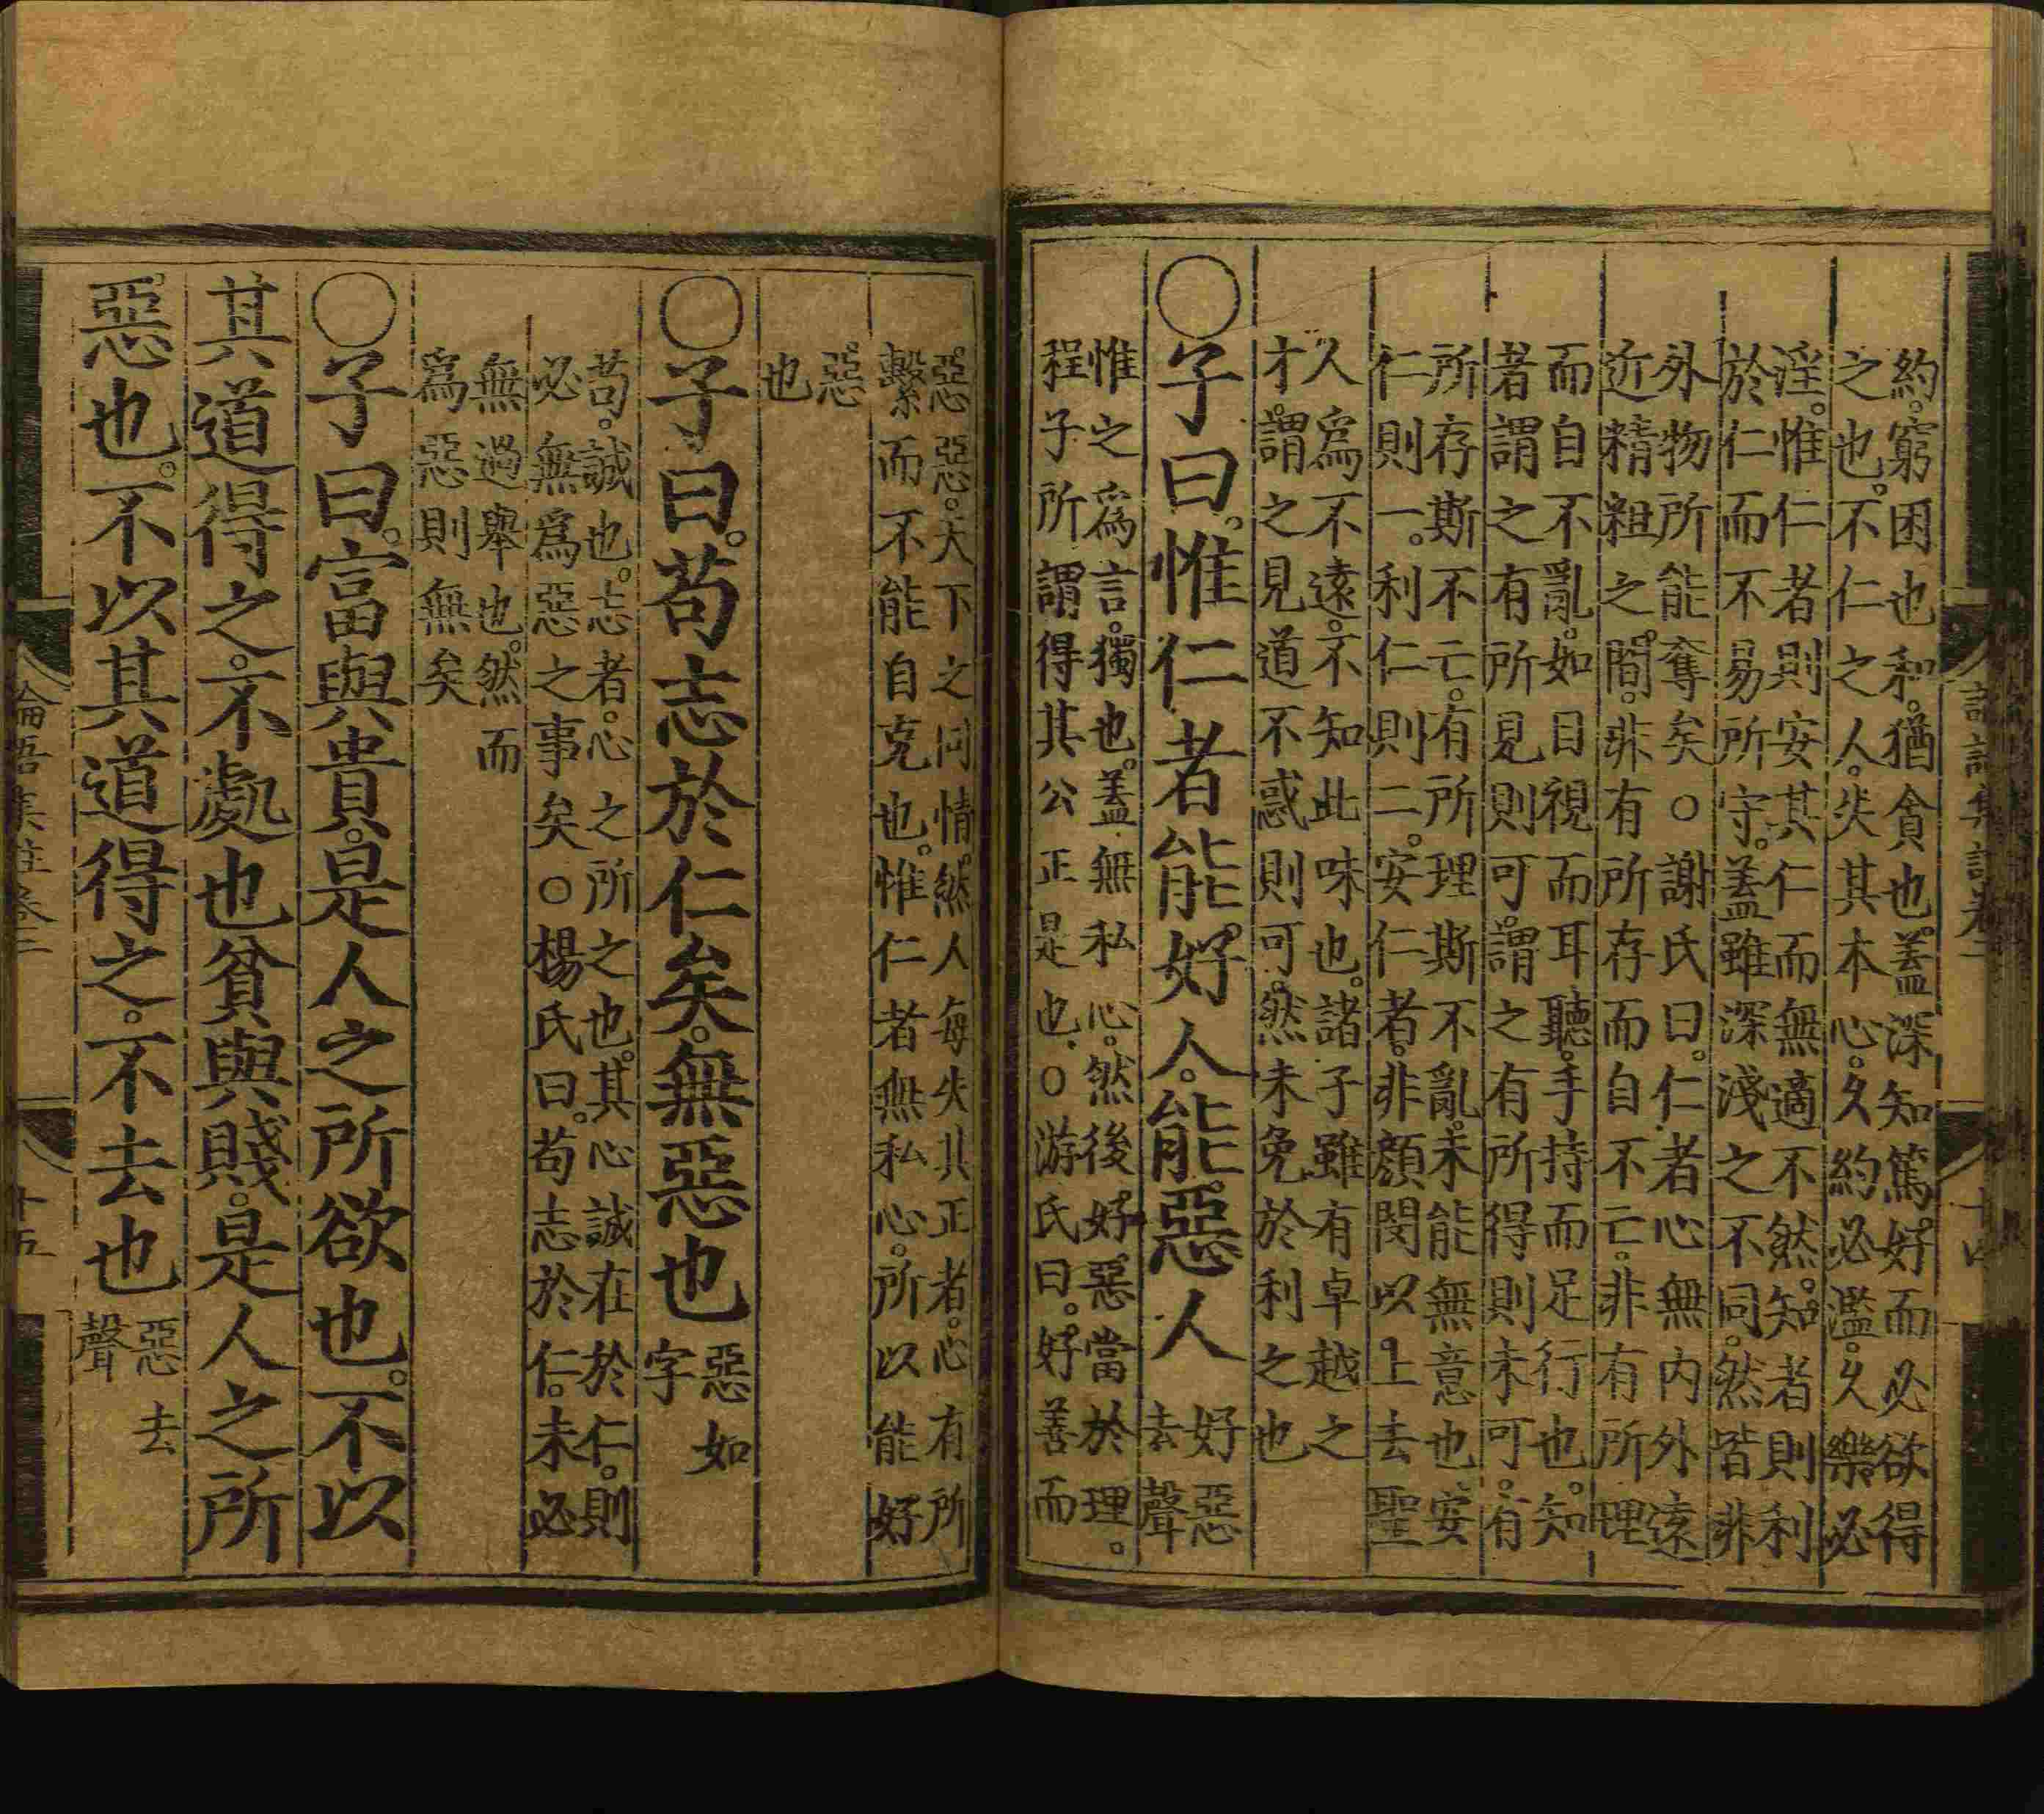 約。窮困也。利。猶貪也。蓋深知篤好而必欲得
之也。不仁之人。失其本心。久約必濫。久樂必
淫。惟仁者則安其仁而無適不然。知者則利
於仁而不易所守。蓋雖深淺之不同。然皆非
外物所能奪矣○謝氏曰。仁者心無內外遠
近精粗之間。非有所存而自不亡。非有所理
而自不亂。如目視而耳聽。手持而足行也。知
者謂之有所見則可。謂之有所得則未可。有
所存斯不亡。有所理斯不亂。未能無意也。安
仁則一。利仁則二。安仁者。非顏閔以上。去聖
人爲不遠。不知此味也。諸子雖有卓越之
才。謂之見道不惑則可。然未免於利之也
○子曰。惟仁者能好人。能惡人
好惡
去聲
惟之爲言。獨也。蓋無私心。然後好惡當於理。
程子所謂得其公正是也。○游氏曰。好善而
惡惡。天下之同情。然人每失其正者。心有所
繫而不能自克也。惟仁者無私心。所以能好
惡
也
○子曰。苟志於仁矣。無惡也
惡如
字
苟。誠也。志者。心之所之也。其心誠在於仁。則
必無爲惡之事矣○楊氏曰。苟志於仁。未必
無過舉也。然而
爲惡則無矣
○子曰。富與貴。是人之所欲也。不以
其道得之。不處也貧與賤。是人之所
惡也。不以其道得之。不去也
惡去
聲
論語集註卷二
十五